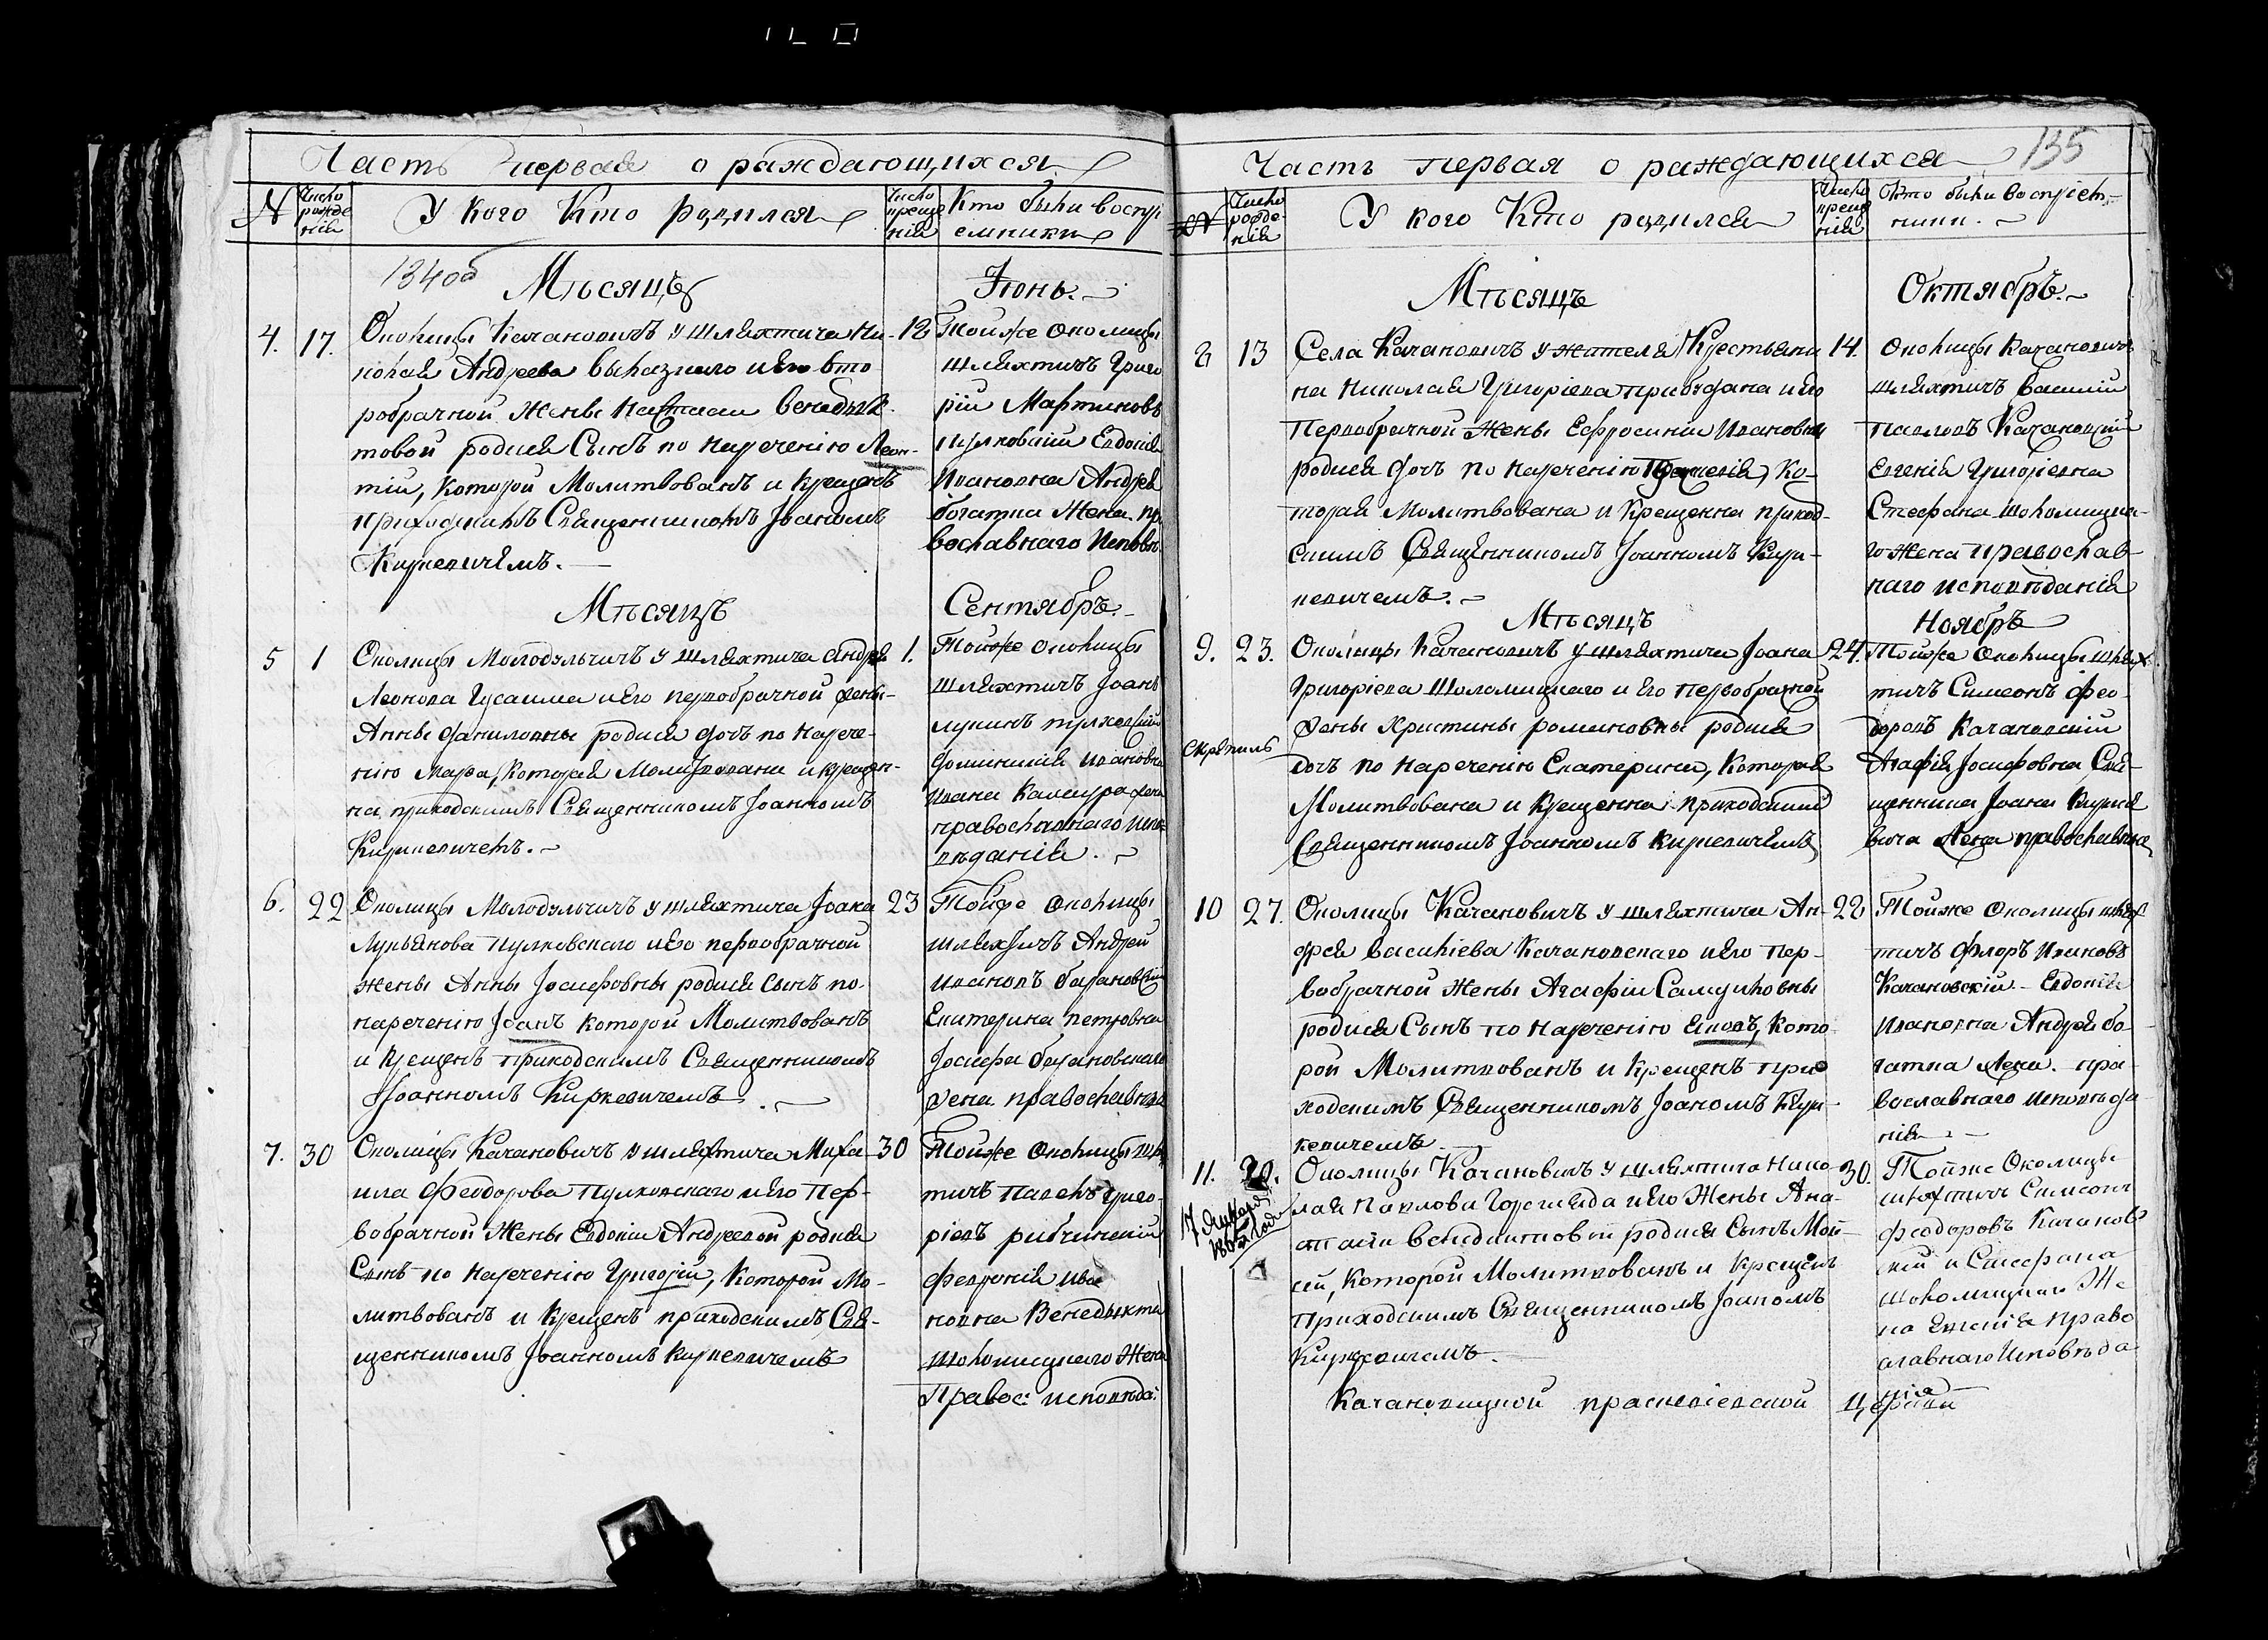 Часть первая о раждающихся
N
Число рожденія
У кого Кто родился
Число крещенія
Кто были воспріемники
134об
Мѣсяцъ
Іюнь.
4. 17.
Околицы Качановичъ у шляхтича Ни-
колая Андреева и его вто-
робрачной жены Настасіи Бенедык-
товой родися Сынъ по нареченію Леон-
тій, Которой Молитвованъ и крещенъ
приходскимъ Священникомъ Іоанномъ
Киркевичемъ.
18
Тойже околицы
шляхтичъ Григо
рій Мартиновъ
Пулковскій Евдокія
Ивановна Андрея
богатка Жена пра
вославнаго Исповѣ
Мѣсяцъ
Сентябръ.
5 1
Околицы Молодульчичъ у шляхтича Андрея
Леонова Гусаима и его первобрачной жены
Анны Даниловны родися дочъ по нарече-
нію Которая Молитвована и крещен-
на приходскимъ Священникомъ Іоанномъ
Киркевичемъ.
1.
Тойже околицы
шляхтичъ Іоанъ
Лукинъ Пулховскій
Ивановна
Ивана
православнаго испо-
вѣданія.
6. 22
Околицы Молодульчичъ у шляхтича Іоана
Лукьянова Пулковскаго и его первобрачной
жены Анны Іосифовны родися сынъ по
нареченію Іоанъ которой Молитвованъ
и крещенъ приходскимъ Священникомъ
Іоанномъ Киркевичемъ.
23
Тойже околицы
шляхтичъ Андрей
Ивановъ Барановскій
Екатерина Петровна
Іосифа Барановскаго
жена православна
7. 30
Околицы Качановичъ у шляхтича Миха-
ила Феодорова Пулковскаго и его пер-
вобрачной жены Евдокіи Андреевой родися
Сынъ по нареченію Григорій, Которой Мо-
литвованъ и крещенъ приходскимъ Свя-
щенникомъ Іоанномъ Киркевичемъ
30
Тойже околицы шлях
тичъ Павелъ Григо-
ріевъ Рибчинскій
Февронія Ива
новна Венедыкта
Шоломицкаго Жена
Правос: исповѣда:
Часть первая о раждающихся
135
N
Число рожденія
У кого Кто родился
Число крещенія
Кто были воспріем-
ники.
Мѣсяцъ
Октябръ.
8 13
Села Качановичъ у жителя Крестьяни
на Николая Григоріева и его
Первобрачной Жены Ефросиніи Ивановны
родися дочъ по нареченію Ко-
торая Молитвована и Крещенна приход-
скимъ Священникомъ Іоанномъ Кир-
кевичемъ.
14.
Околицы Качановичъ
шляхтичъ Василій
Павловъ Качановскій
Евгенія Григоріевна
Стефана Шоломицка-
го жена православ-
наго исповѣданія
Мѣсяцъ
Ноябръ
9. 23.
Околицы Качановичъ у шляхтича Іоана
Григоріева Шоломицкаго и его первобрачной
жены Христины Романовны родися
дочъ по нареченію Екатерина, Которая
Молитвована и Крещенна приходскимъ
Священникомъ Іоанномъ Киркевичемъ
Скрѣпилъ
24.
Тойже околицы шлях
тичъ Симеонъ Фео-
доровъ Качановскій
Агафія Іосифовна Свя-
щенника Іоана Кирке
вича жена православна
10 27.
Околицы Качановичъ у шляхтича Ан-
дрея Василіева Качановскаго и его пер-
вобрачной Жены Агафіи Самуиловны
родися Сынъ по нареченію Яковъ, Кото-
рой Молитвованъ и Крещенъ при
ходскимъ Священникомъ Іоаномъ Кир-
кевичемъ
28
Тойже околицы шлях
тичъ Флоръ Ивановъ
Качановскій Евдокія
Ивановна Андрея бо-
гатка жена пра-
вославнаго исповѣда-
нія
11.
17 Января
Околицы Качановичъ у шляхтича Нико-
лая Павлова и его Жены Ана-
стасіи Бенедиктовой родися Сынъ Мои-
сѣй, Которой Молитвованъ и Крещенъ
Приходскимъ Священникомъ Іоаномъ
Киркевичемъ.
30.
Тойже Околицы
шляхтичъ Симеонъ
Феодоровъ Качанов-
скій и Стефана
Шоломицкаго Же
на Евгенія право
славнаго Исповѣда
нія
Качановицкой праскевіевской церкви